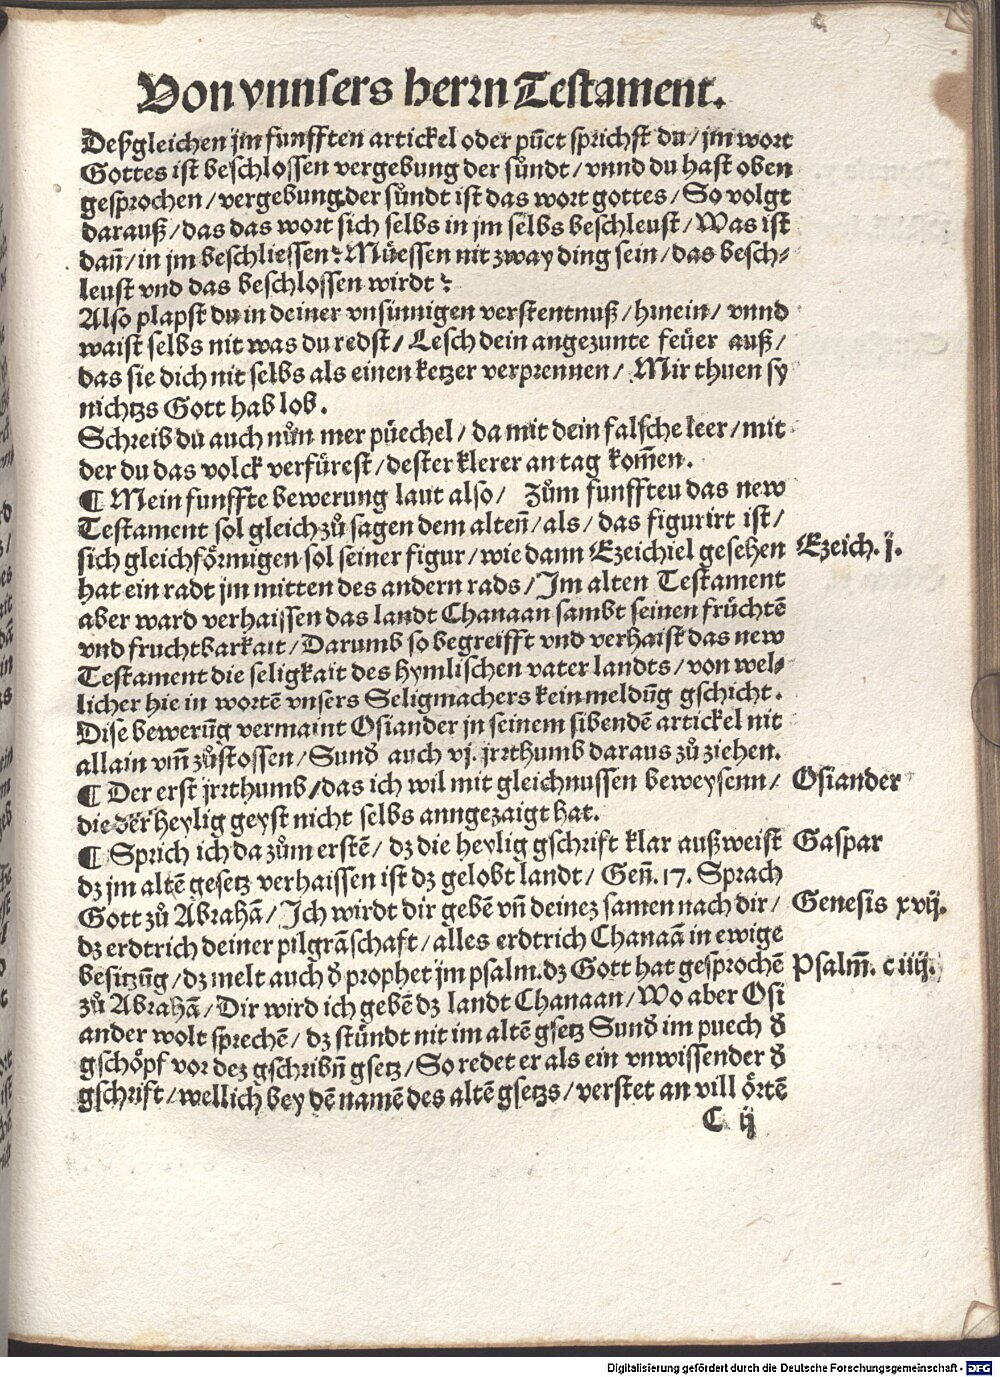 Von vnnsers herrn Testament.
Deßgleichen jm funfften artickel oder pūct sprichst du / jm wort
Gottes ist beschlossen vergebung der sůndt / vnnd du hast oben
gesprochen / vergebung der sůndt ist das wort gottes / So volgt
darauß / das das wort sich selbs in jm selbs beschleust / Was ist
dañ / in jm beschliessen? Müessen nit zway ding sein / das besch⸗
leust vnd das beschlossen wirdt?
Also plapst du in deiner vnsinnigen verstentnuß / hinein / vnnd
waist selbs nit was du redst / Lesch dein angezunte feüer auß /
das sie dich nit selbs als einen ketzer verprennen / Mir thuen sy
nichtzs Gott hab lob.
Schreib du auch nůn mer püechel / da mit dein falsche leer / mit
der du das volck verfürest / dester klerer an tag kom̄en.
¶ Mein funffte bewerung laut also / Zům funffteu das new
Testament sol gleich zů sagen dem alteñ / als / das figurirt ist /
sich gleichförmigen sol seiner figur / wie dann Ezeichiel gesehen
Ezeich. j.
hat ein radt jm mitten des andern rads / Jm alten Testament
aber ward verhaissen das landt Chanaan sambt seinen früchtē
vnd fruchtbarkait / Darumb so begreifft vnd verhaist das new
Testament die seligkait des hymlischen vater landts / von wel⸗
licher hie in wortē vnsers Seligmachers kein meldūg gschicht.
Dise bewerūg vermaint Osiander jn seinem sibendē artickel nit
allain vm̄ zůstossen / Sunď auch vj. jrrthumb daraus zů ziehen.
¶ Der erst jrrthumb / das ich wil mit gleichnussen beweysenn /
Osiander
die der heylig geyst nicht selbs anngezaigt hat.
¶ Sprich ich da zům erstē / dz die heylig gschrift klar außweist
Gaspar
dz jm altē gesetz verhaissen ist dz gelobt landt / Geñ. 17. Sprach
Gott zů Abrahā / Ich wirdt dir gebē vñ deinez samen nach dir /
Genesis xvij.
dz erdtrich deiner pilgrāschaft / alles erdtrich Chanaā in ewige
besitzūg / dz melt auch ď prophet jm psalm. dz Gott hat gesprochē
Psalm̄. ciiij.
zů Abrahā / Dir wird ich gebē dz landt Chanaan / Wo aber Osi
ander wolt sprechē / dz stündt nit im altē gsetz Sunď im puech ď
gschöpf vor dez gschribñ gsetz / So redet er als ein vnwissender ď
gschrift / wellich bey dē namē des altē gsetzs / verstet an vill örtē
C ij
Digitalisierung gefördert durch die Deutsche Forschungsgemeinschaft - DFG